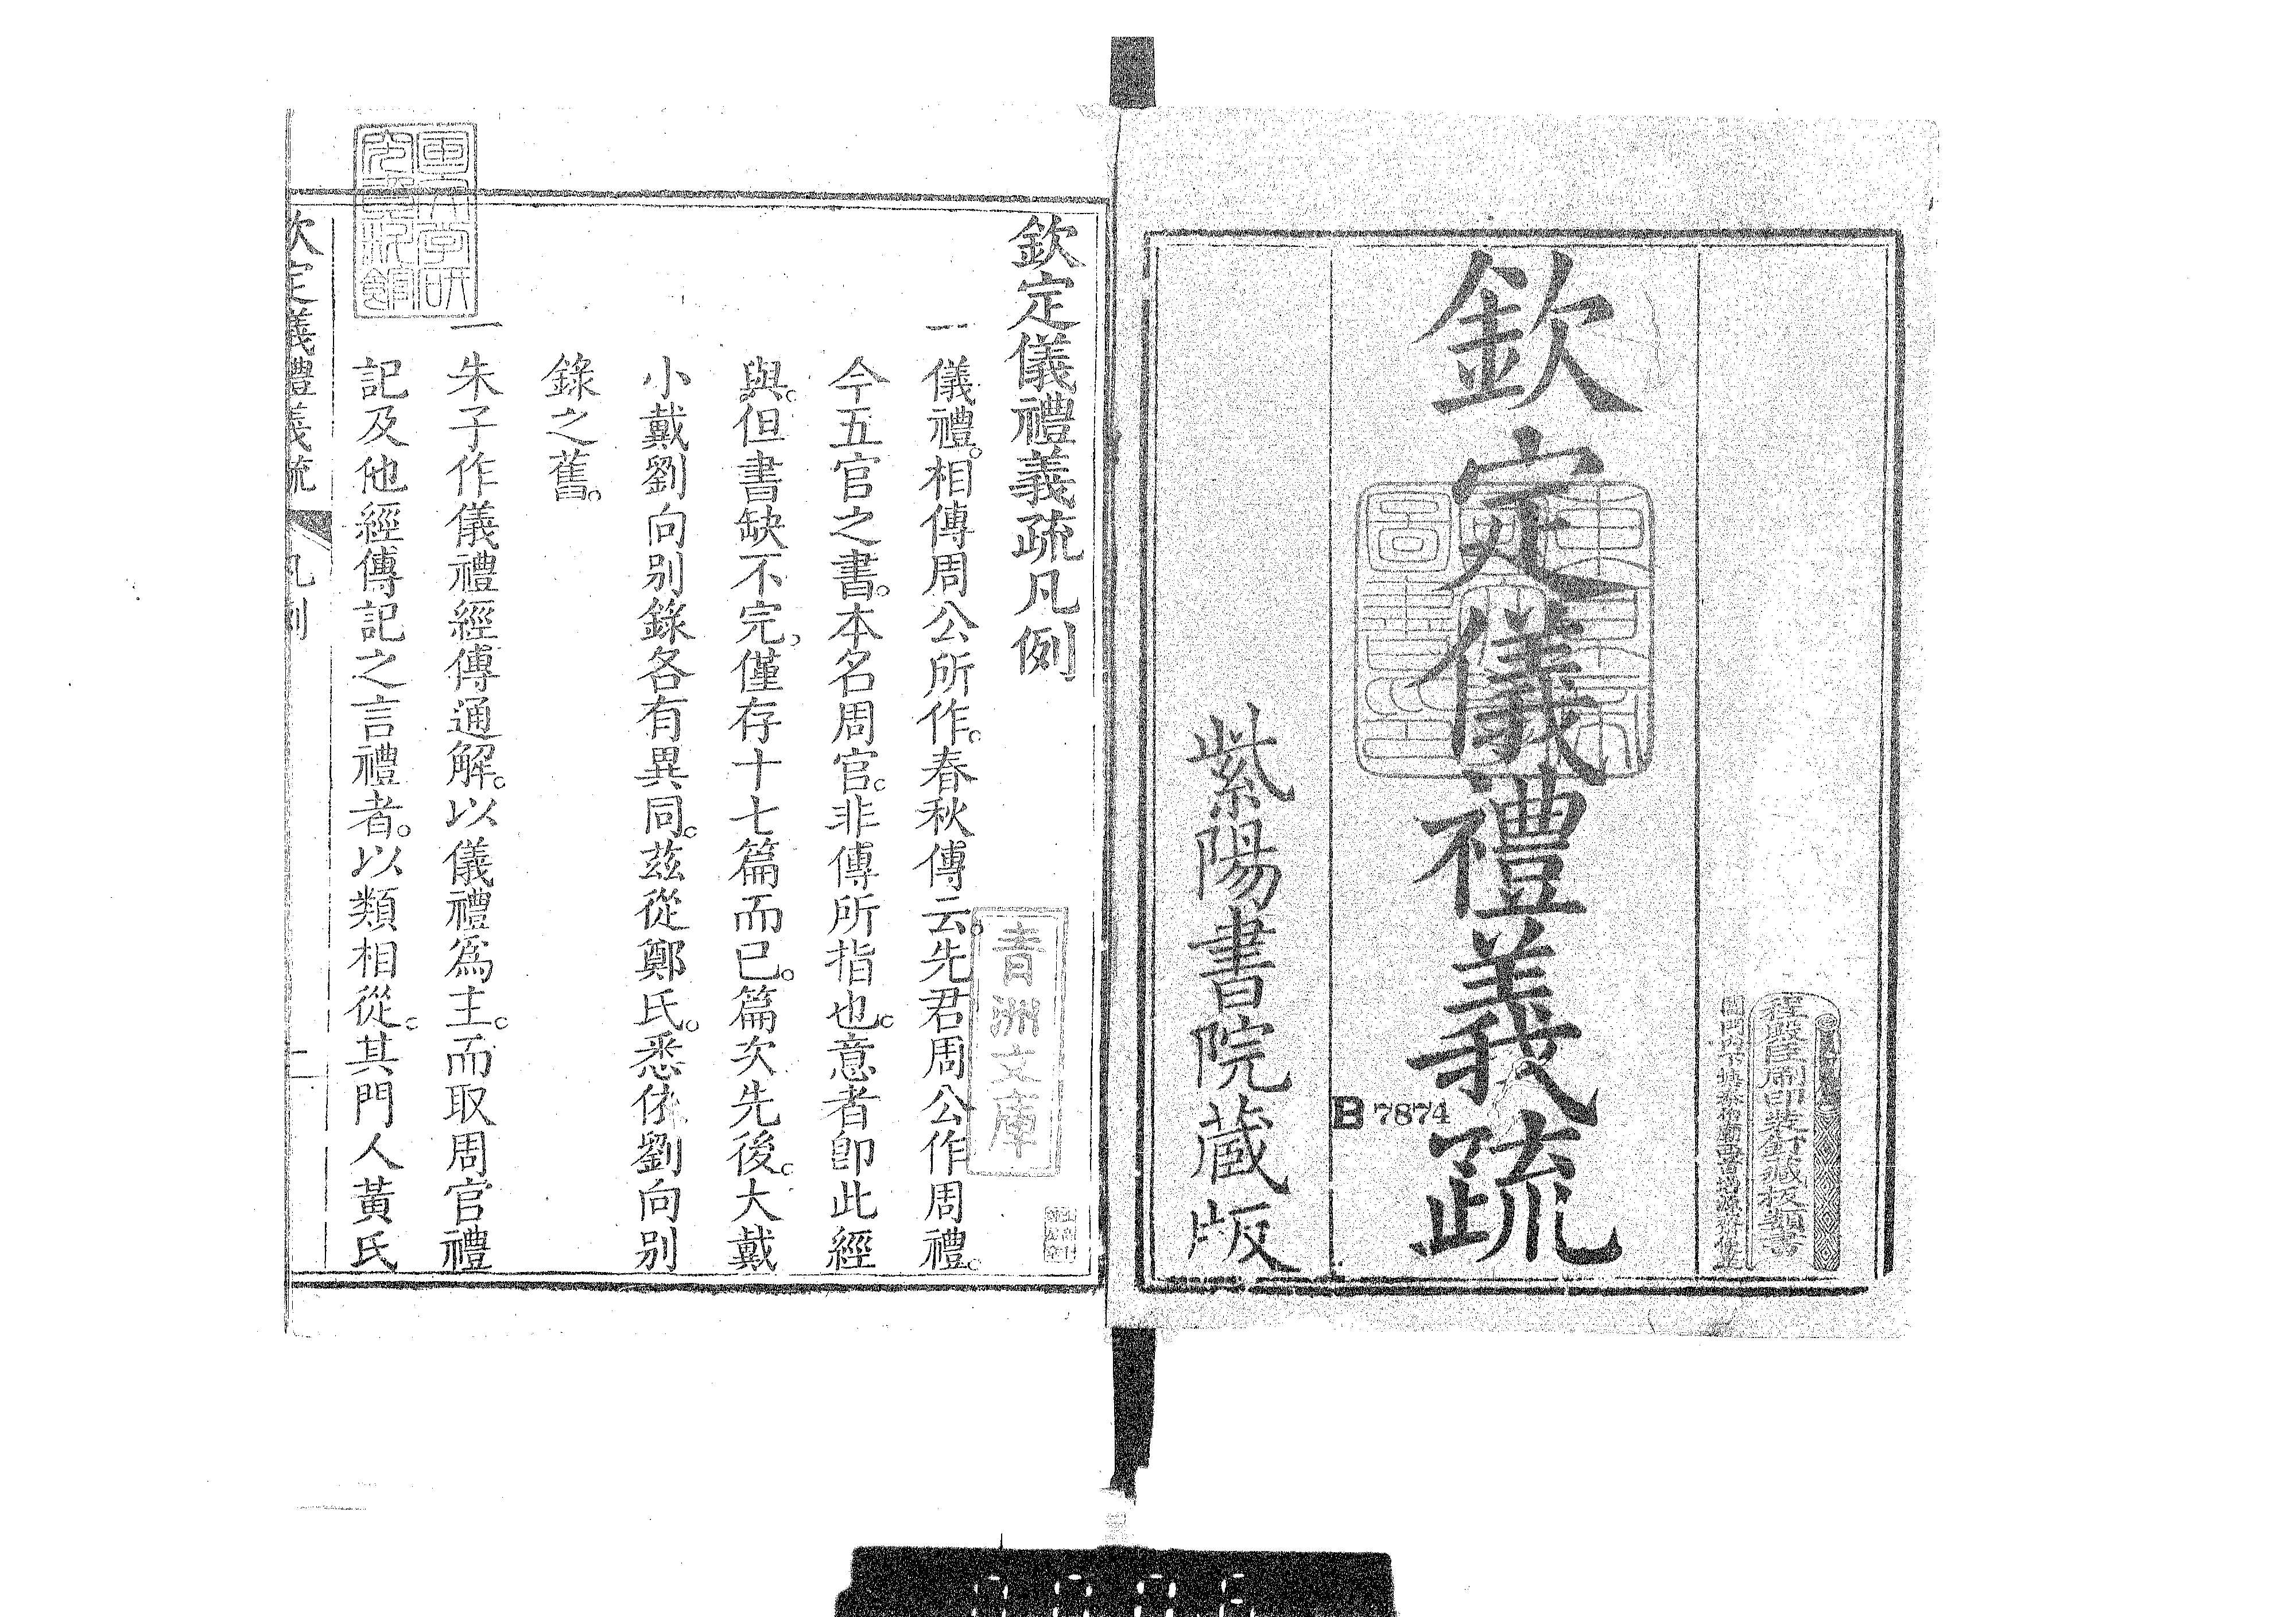 欽定儀禮義疏
紫陽書院藏版
B 7874
欽定儀禮義疏凡例
一儀禮。相傳周公所作。春秋傳云。先君周公作周禮。
今五官之書。本名周官。非傳所指也。意者卽此經
與。但書缺不完，僅存十七篇而已。篇次先後。大戴
小戴劉向别錄各有異同。茲從鄭氏。悉依劉向别
錄之舊。
一朱子作儀禮經傳通解。以儀禮爲主。而取周官禮
記及他經傳記之言禮者。以類相從。其門人黃氏
欽定儀禮義疏 凡例 一
青洲文庫